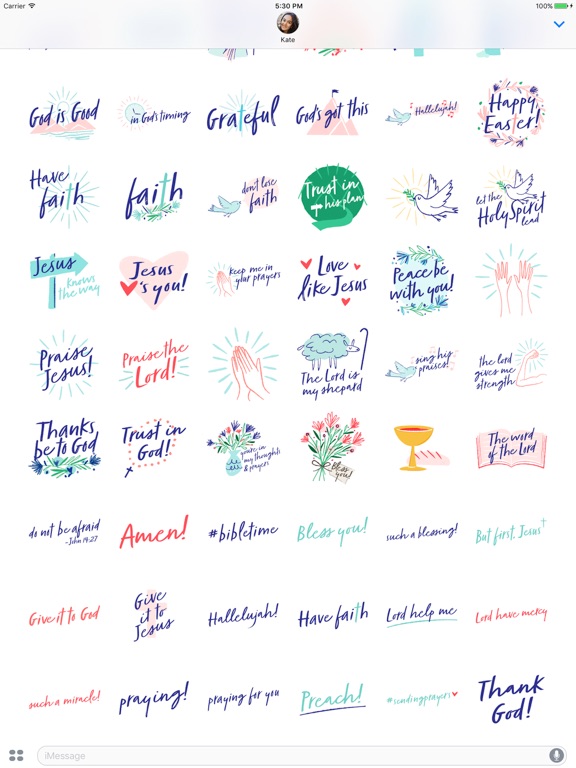 Carrier
5:30 PM
100%
Kate
God is Good
in God's timing
Grateful
God's got this
Hallelujah!
Happy
Easter!
Have
faith
faith
don't lose
faith
Trust in
his plan
let the
Holy Spirit
lead
Jesus
knows
the way
Jesus
's you!
keep me in
your prayers
Love
like Jesus
Peace be
with you!
Praise
Jesus!
Praise the
Lord!
The Lord is
my shepard
sing his
praises!
the lord
gives me
strength
Thanks
be to God
Trust in
God!
you're in
my thoughts
& prayers
bless
you!
The word
of the Lord
do not be afraid
-John 14:27
Amen!
#bibletime
Bless you!
such a blessing!
But first, Jesus
Give it to God
Give
it to
Jesus
Hallelujah!
Have faith
Lord help me
Lord have mercy
such a miracle!
praying!
praying for you
Preach!
#sendingprayers
Thank
God!
iMessage